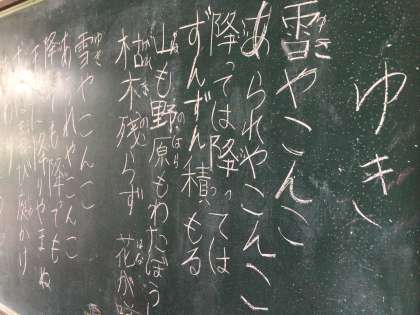 ゆき
雪やこんこ
あられやこんこ
降っては降っては
ずんずん積もる
山も野原もわたぼうし
枯木残らず 花が
雪やこんこ
あられやこんこ
降っても降っても
降りやまぬ
喜び庭かけ